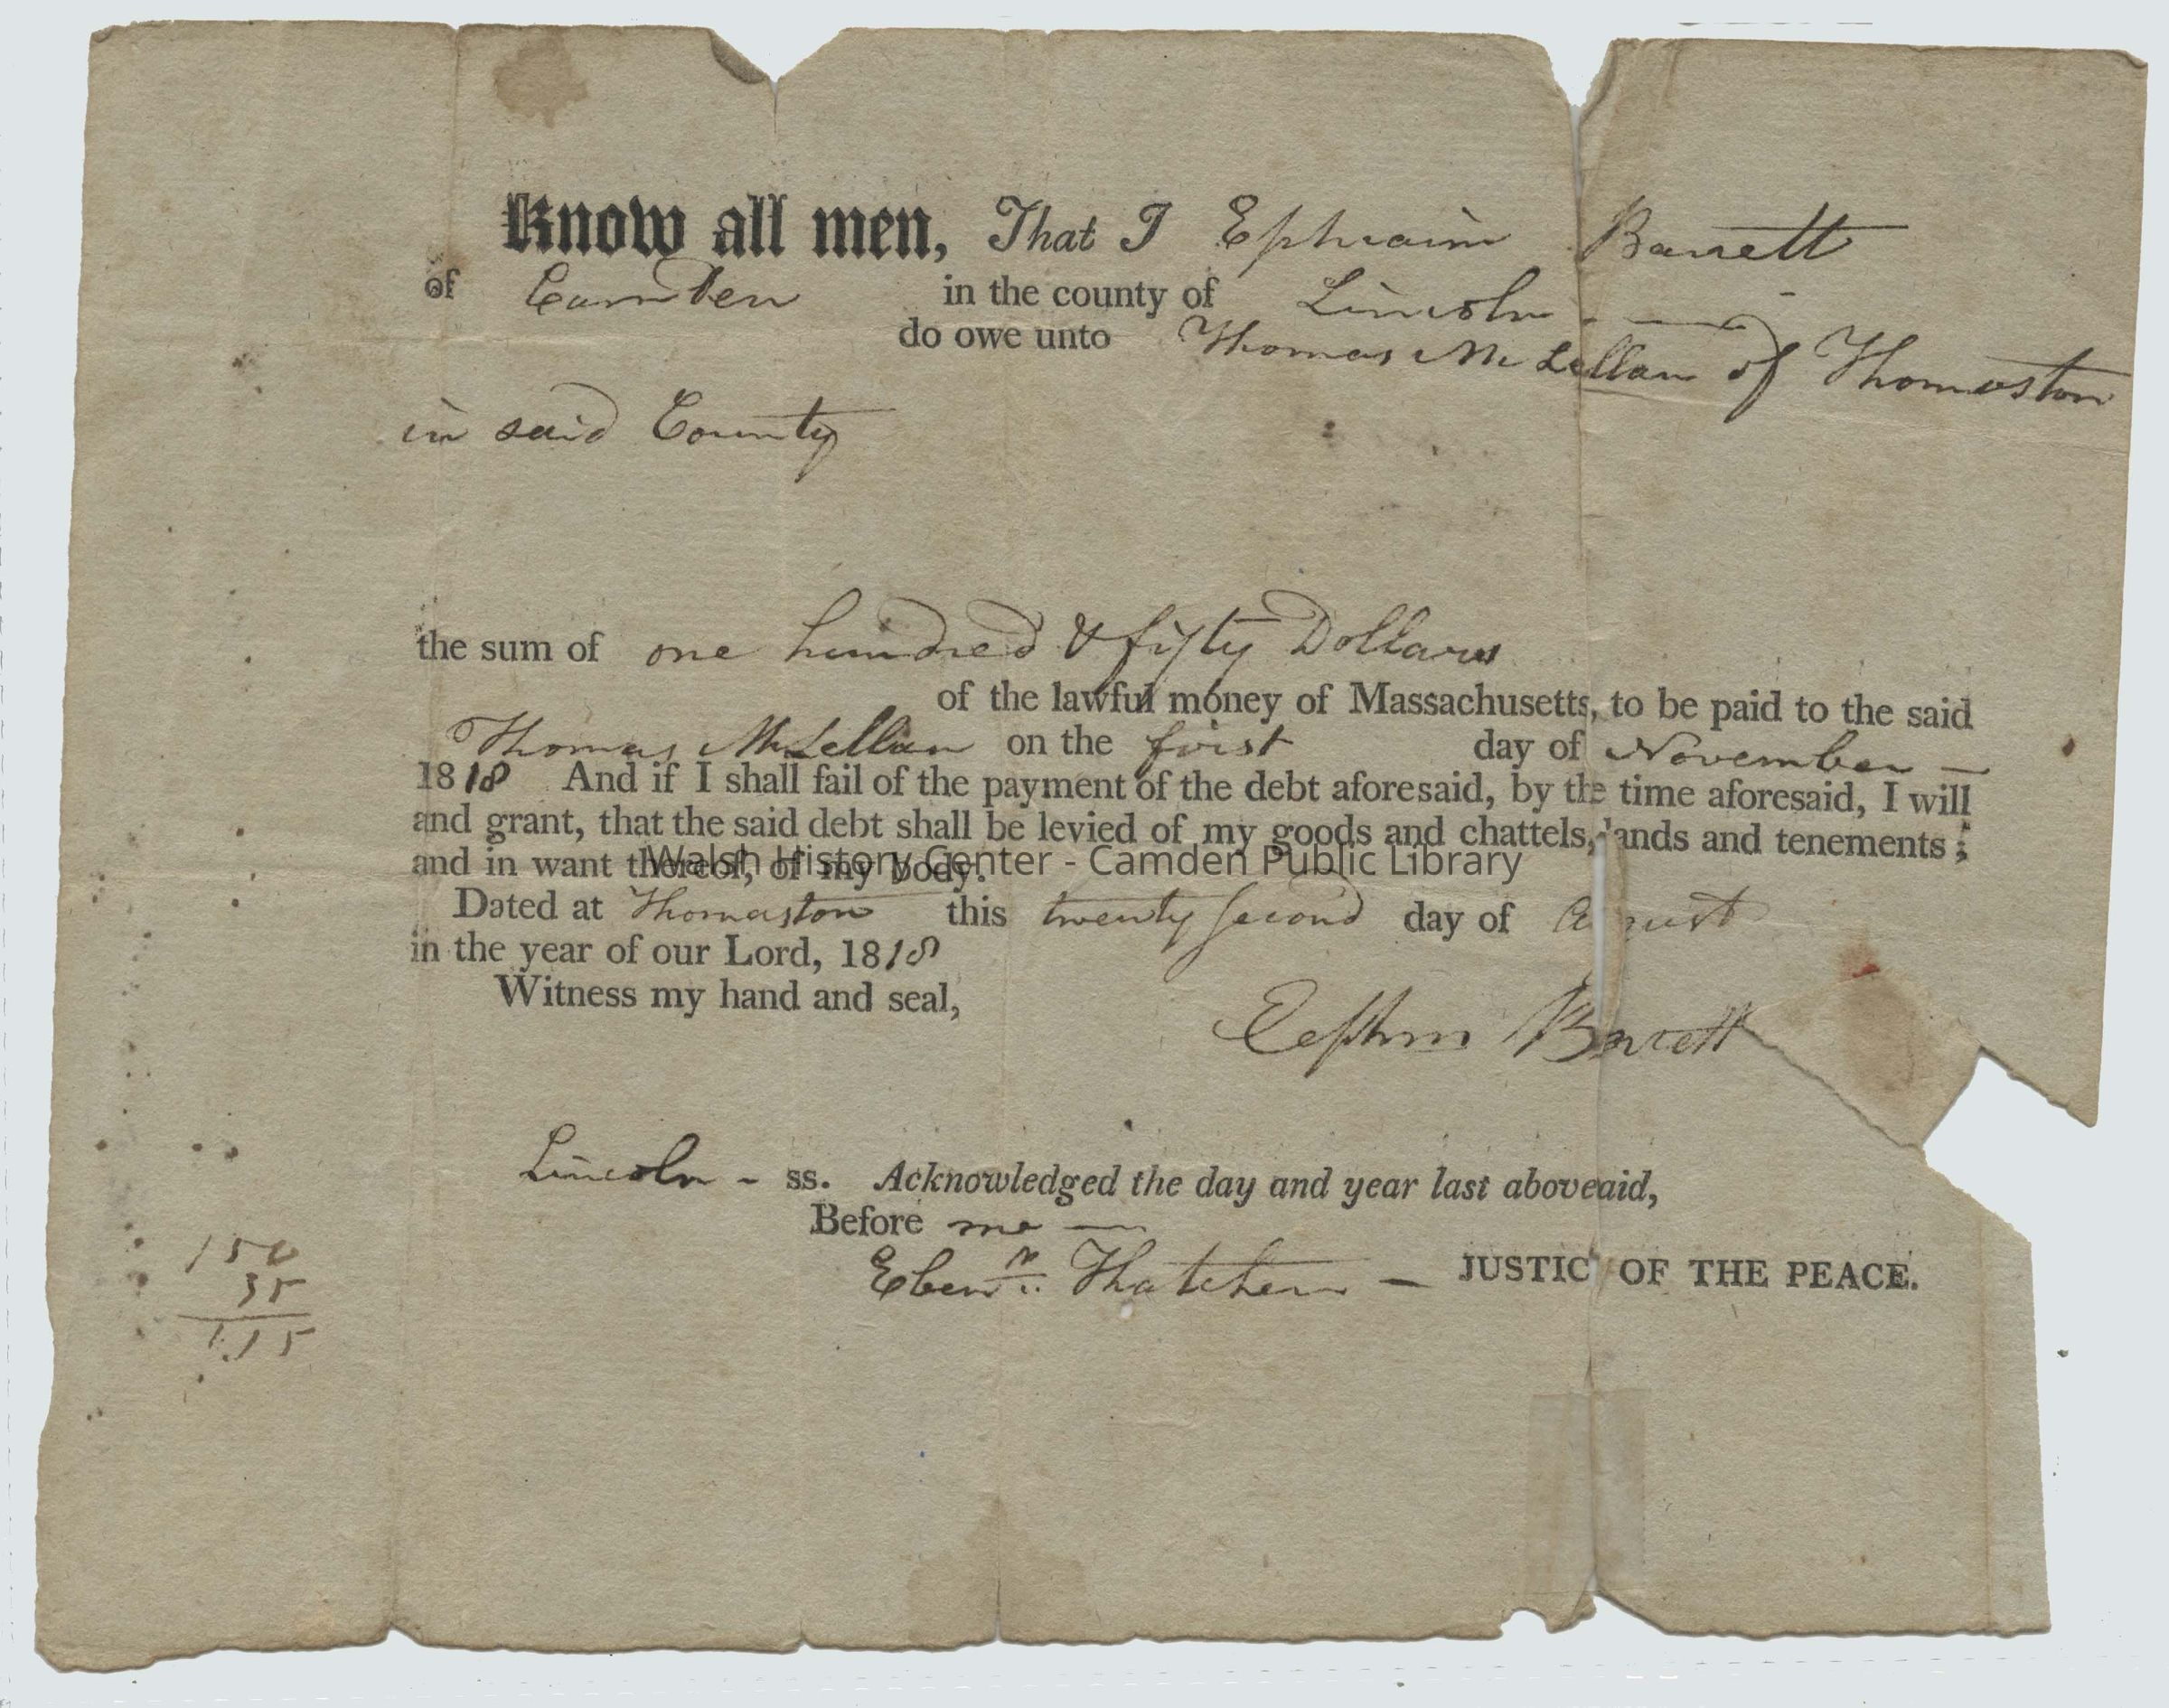 Know all men, That I Ephraim Barrett
of Camden in the county of Lincoln
do owe unto Thomas McLellan of Thomaston
in said County
the sum of one hundred & fifty Dollars
of the lawful money of Massachusetts, to be paid to the said
Thomas McLellan on the first day of November
1818 And if I shall fail of the payment of the debt aforesaid, by the time aforesaid, I will
and grant, that the said debt shall be levied of my goods and chattels, lands and tenements;
and in want thereof, of my body.
Walsh History Center - Camden Public Library
Dated at Thomaston this twenty second day of August
in the year of our Lord, 1818
Witness my hand and seal,
Ephm Barrett
Lincoln - ss. Acknowledged the day and year last aboveaid,
Before me
Ebenr. Thatcher - JUSTIC OF THE PEACE.
150
35
115